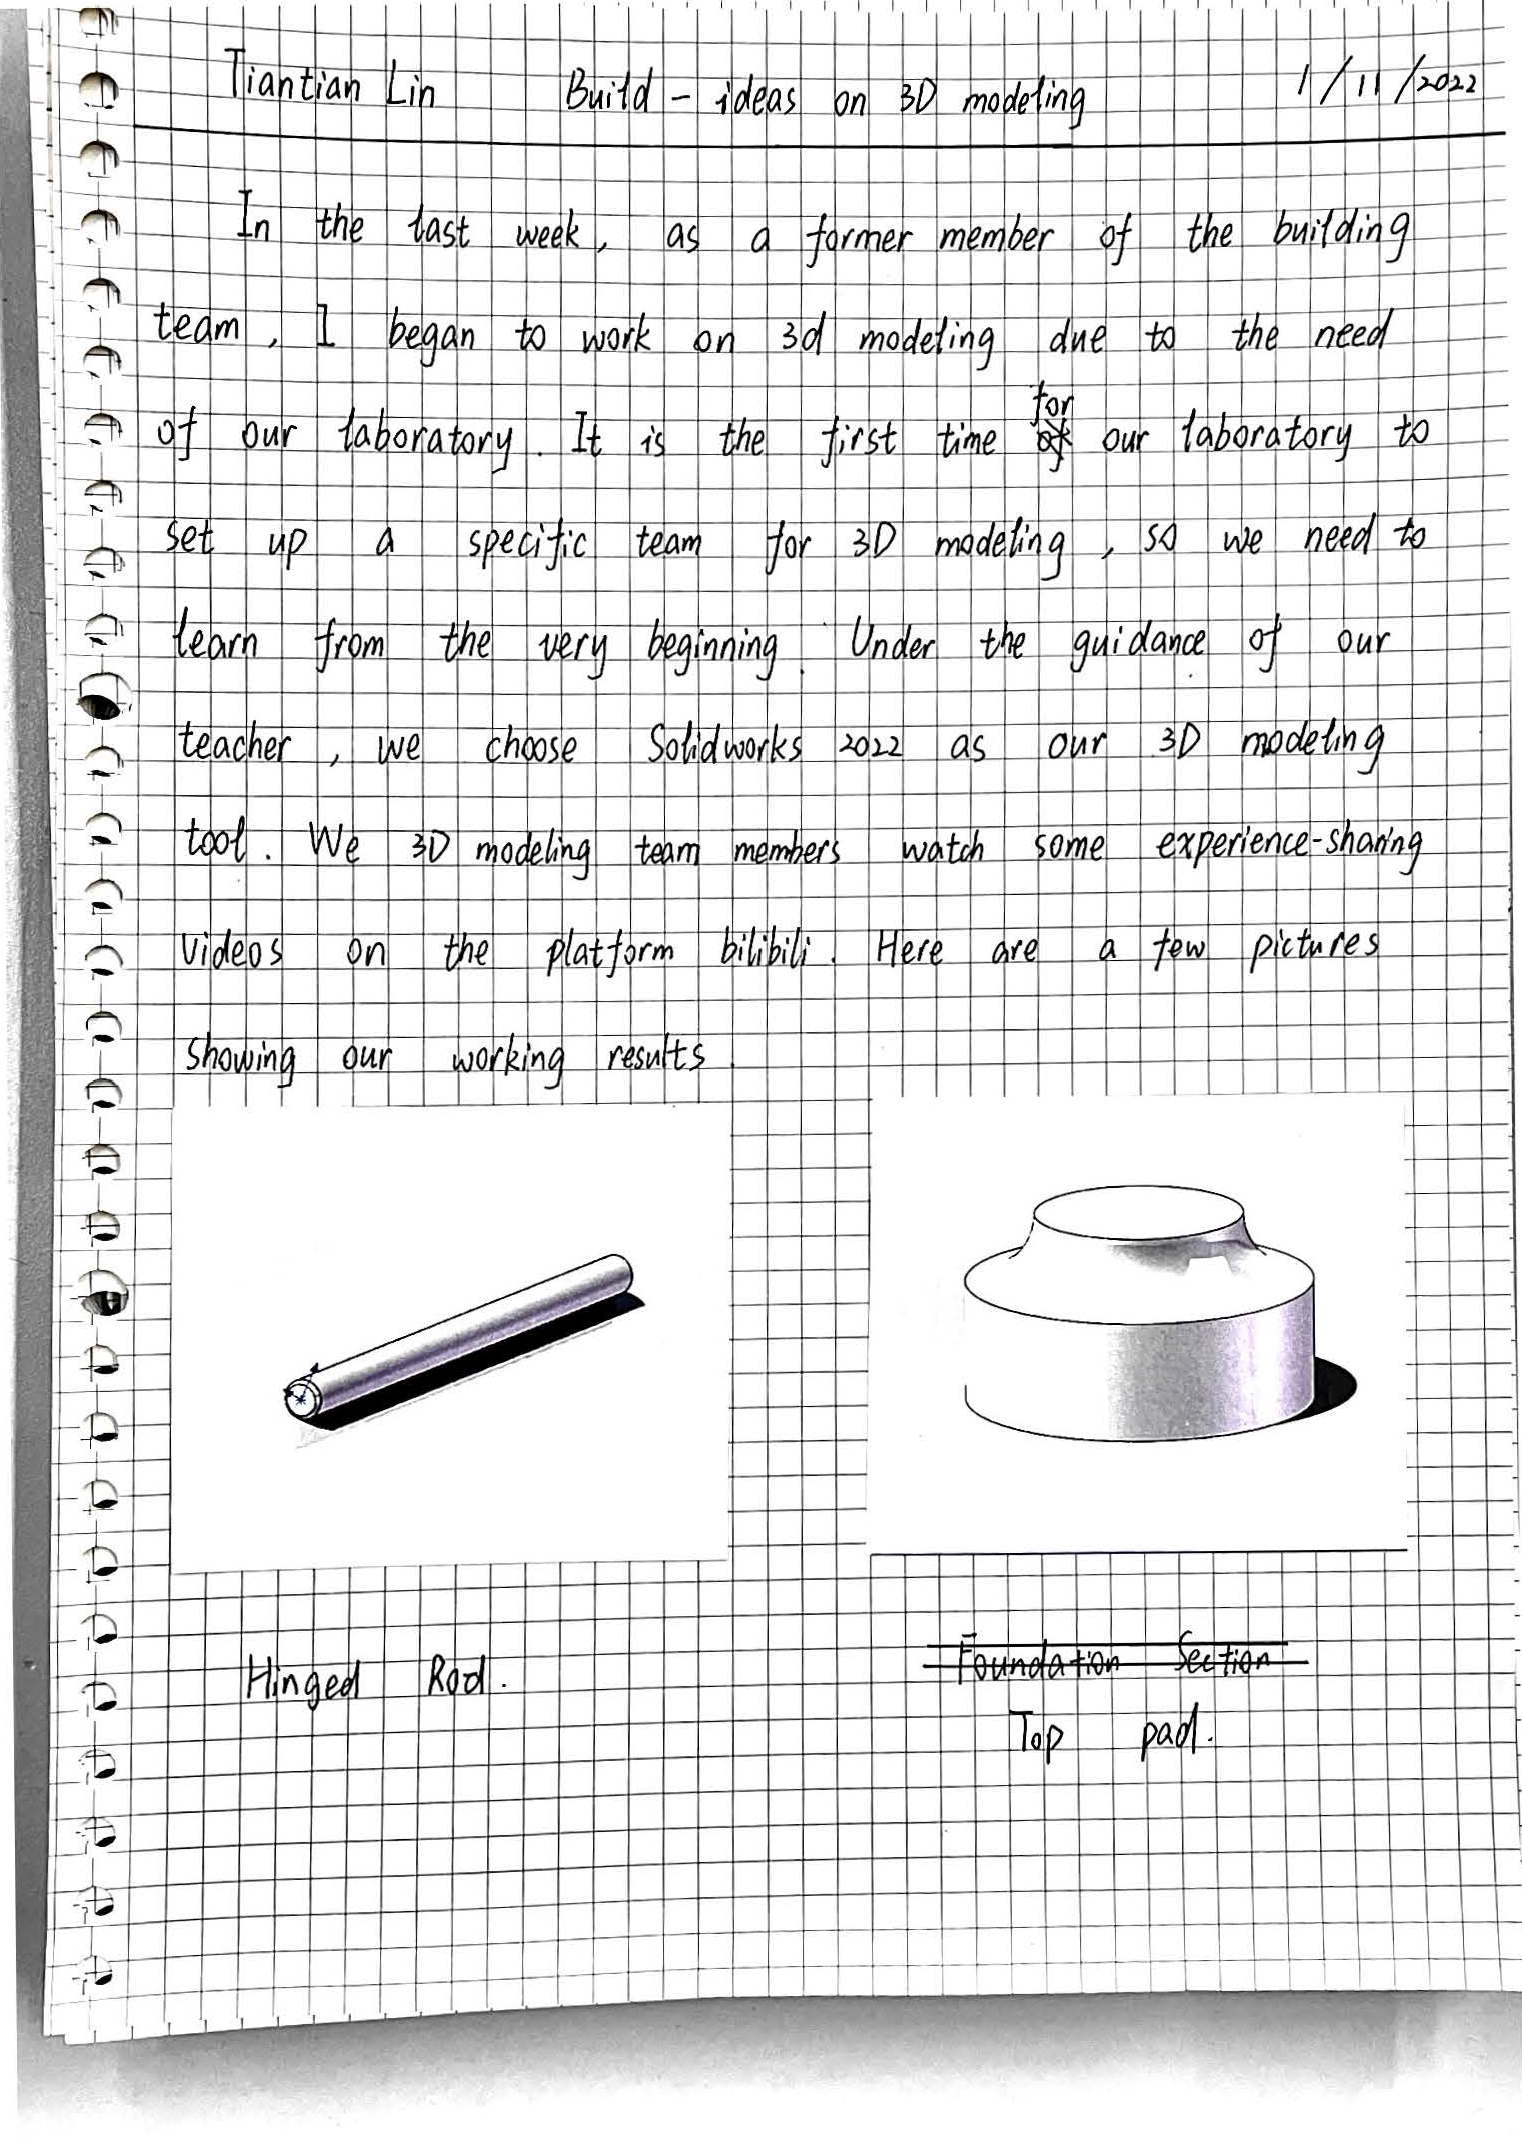 Tiantian Lin Build - ideas on 3D modeling 1/11/2022
In the last week, as a former member of the building
team, I began to work on 3d modeling due to the need
of our laboratory. It is the first time for our laboratory to
set up a specific team for 3D modeling, so we need to
learn from the very beginning. Under the guidance of our
teacher, we choose Solidworks 2022 as our 3D modeling
tool. We 3D modeling team members watch some experience-sharing
videos on the platform bilibili. Here are a few pictures
showing our working results.
Hinged Rod.
Foundation Section
Top pad.